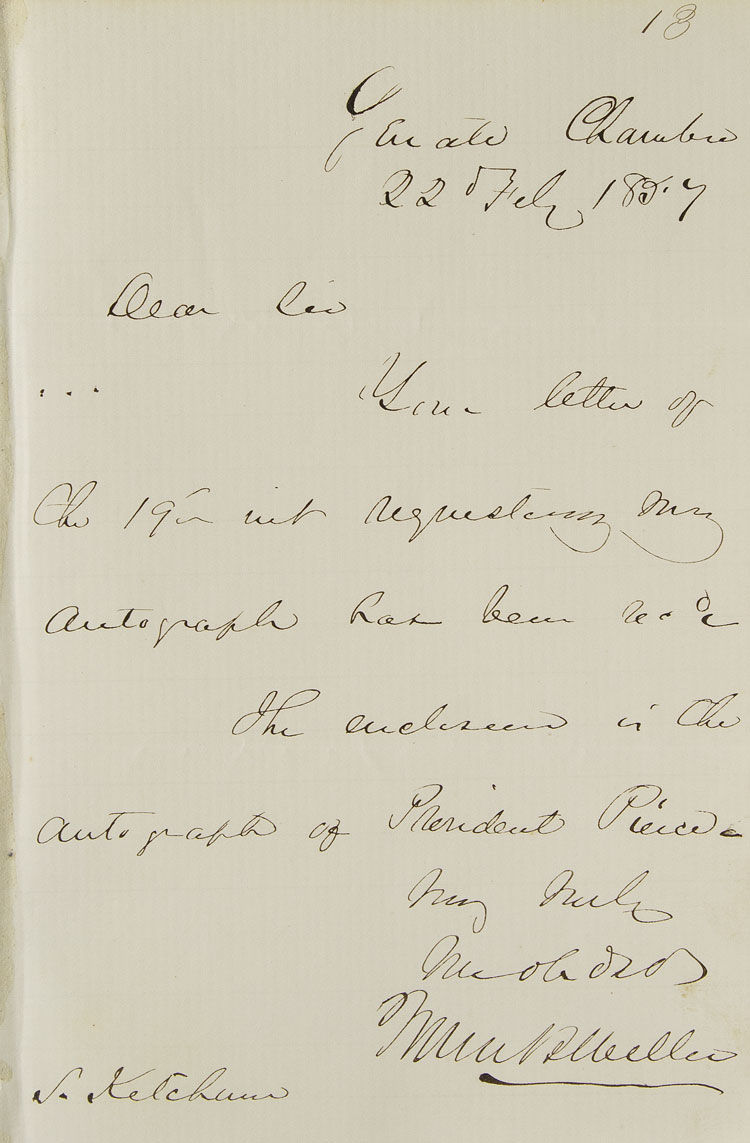 13
Senate Chamber
22d Feby 1857
Dear Sir
... Your letter of
the 19th inst requesting my
autograph has been recd
The enclosed is the
autograph of President Pierce
Very truly
Yr obd sevt
John B Weller
S. Ketchum